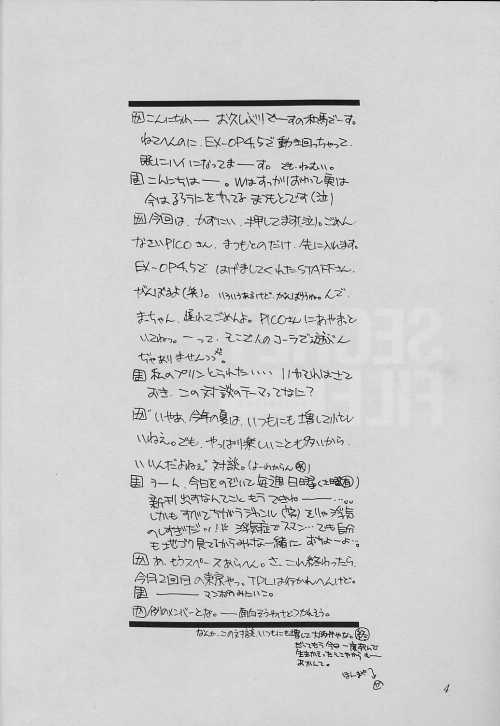 こんにちわー お久しぶりでーすの和馬でーす。
ねてへんのに、EX-OP4,5で動き回っちゃって、
既にハイになってまーす。でも、ねむい。
こんにちはー。Wはすっかりおわって実は
今はるろうにをやってる まつもとです(泣)
今回は、かずにい、押してます(泣)。ごめん
なさいPICOさん、まつもとのだけ、先に入れます。
EX-OP4,5で はげましてくれたSTAFFさん、
がんばるよ(笑)。いろいろあるけど、がんばろうね。んで、
まーちゃん、遅れてごめんよ。PICOさんにあやまっと
いてねっ。ーって、そこでんのコーラで遊ぶん
ぢゃありませんっっ
私のプリンとられたいい
おき、この対談のテーマってなに?
いやあ、今年の夏は、いつもにも増して
いねぇ。でも、やっぱり楽しいことも多いから、
いいんだよねぇ 対談。(よーわからん)
うーん、今日をのぞいて毎週日曜(土曜)
新刊出すなんてこともうできねー
しかもすべてちがうジャンル(笑)をや浮気
のしすぎだッ!! 浮気症でスマン…でも自分
も地ゴク見てるからみんな一緒に おちよーよ…
あ、もうスペースあらへん。さ、これ終わったら、
今月2回目の東京やっ。TDLは行かれへんけど。
ー マンボウみたいこ。
例のメンバーとな。ー面白そうやけどつかれそう。
なんか、この対談、いつもにも増して
だってもう今日一度死んで
生きかえったとこやから
おかんて。
ほんまや
4
SECRET
FILE